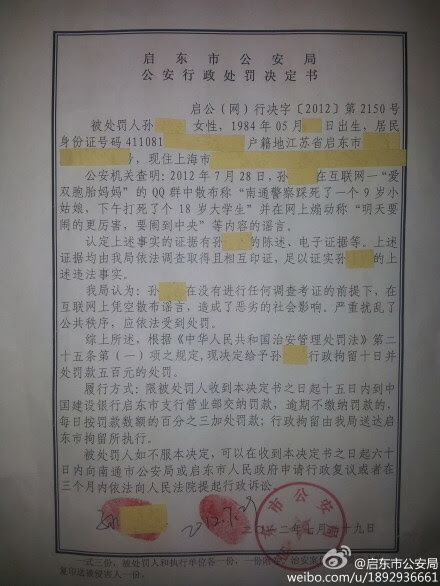 启东市公安局
公安行政处罚决定书
启公（网）行决字〔2012〕第2150号
被处罚人孙 女性，1984年05月 日出生，居民
身份证号码411081 户籍地江苏省启东市
号，现住上海市
公安机关查明：2012年7月28日，孙 在互联网一“爱
双胞胎妈妈”的QQ群中散布称“南通警察踩死了一个9岁小
姑娘，下午打死了个18岁大学生”并在网上煽动称“明天要
闹的更厉害，要闹到中央”等内容的谣言。
认定上述事实的证据有孙 的陈述、电子证据等。上述
证据均由我局依法调查取得且相互印证，足以证实孙 的上
述违法事实。
我局认为：孙 在没有进行任何调查考证的前提下，在
互联网上凭空散布谣言，造成了恶劣的社会影响。严重扰乱了
公共秩序，应依法受到处罚。
综上所述，根据《中华人民共和国治安管理处罚法》第二
十五条第（一）项之规定，现决定给予孙 行政拘留十日并
处罚款五百元的处罚。
履行方式：限被处罚人收到本决定书之日起十五日内到中
国建设银行启东市支行营业部交纳罚款，逾期不缴纳罚款的，
每日按罚款数额的百分之三加处罚款；行政拘留由我局送达启
东市拘留所执行。
被处罚人如不服本决定，可以在收到本决定书之日起六十
日内向南通市公安局或启东市人民政府申请行政复议或者在
三个月内依法向人民法院提起行政诉讼。
孙 2012.7.29
二〇一二年七月二十九日
一式三份，被处罚人和执行单位各一份，一份附卷。治安案
复印送被侵害人一份。
@启东市公安局
weibo.com/u/1892936661